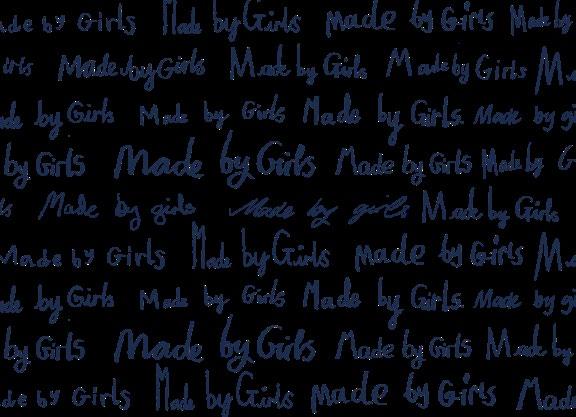 ade by Girls Made by Girls Made by Girls Made by
irls Made by Girls Made by Girls Made by Girls M
ade by Girls Made by Girls Made by Girls Made by gi
by Girls Made by Girls Made by Girls Made by G
ls Made by girls Made by girls Made by Girls
Made by Girls Made by Girls Made by Girls M
ade by Girls Made by Girls Made by Girls Made by gi
by Girls Made by Girls Made by Girls Made by
de by Girls Made by Girls Made by Girls Made